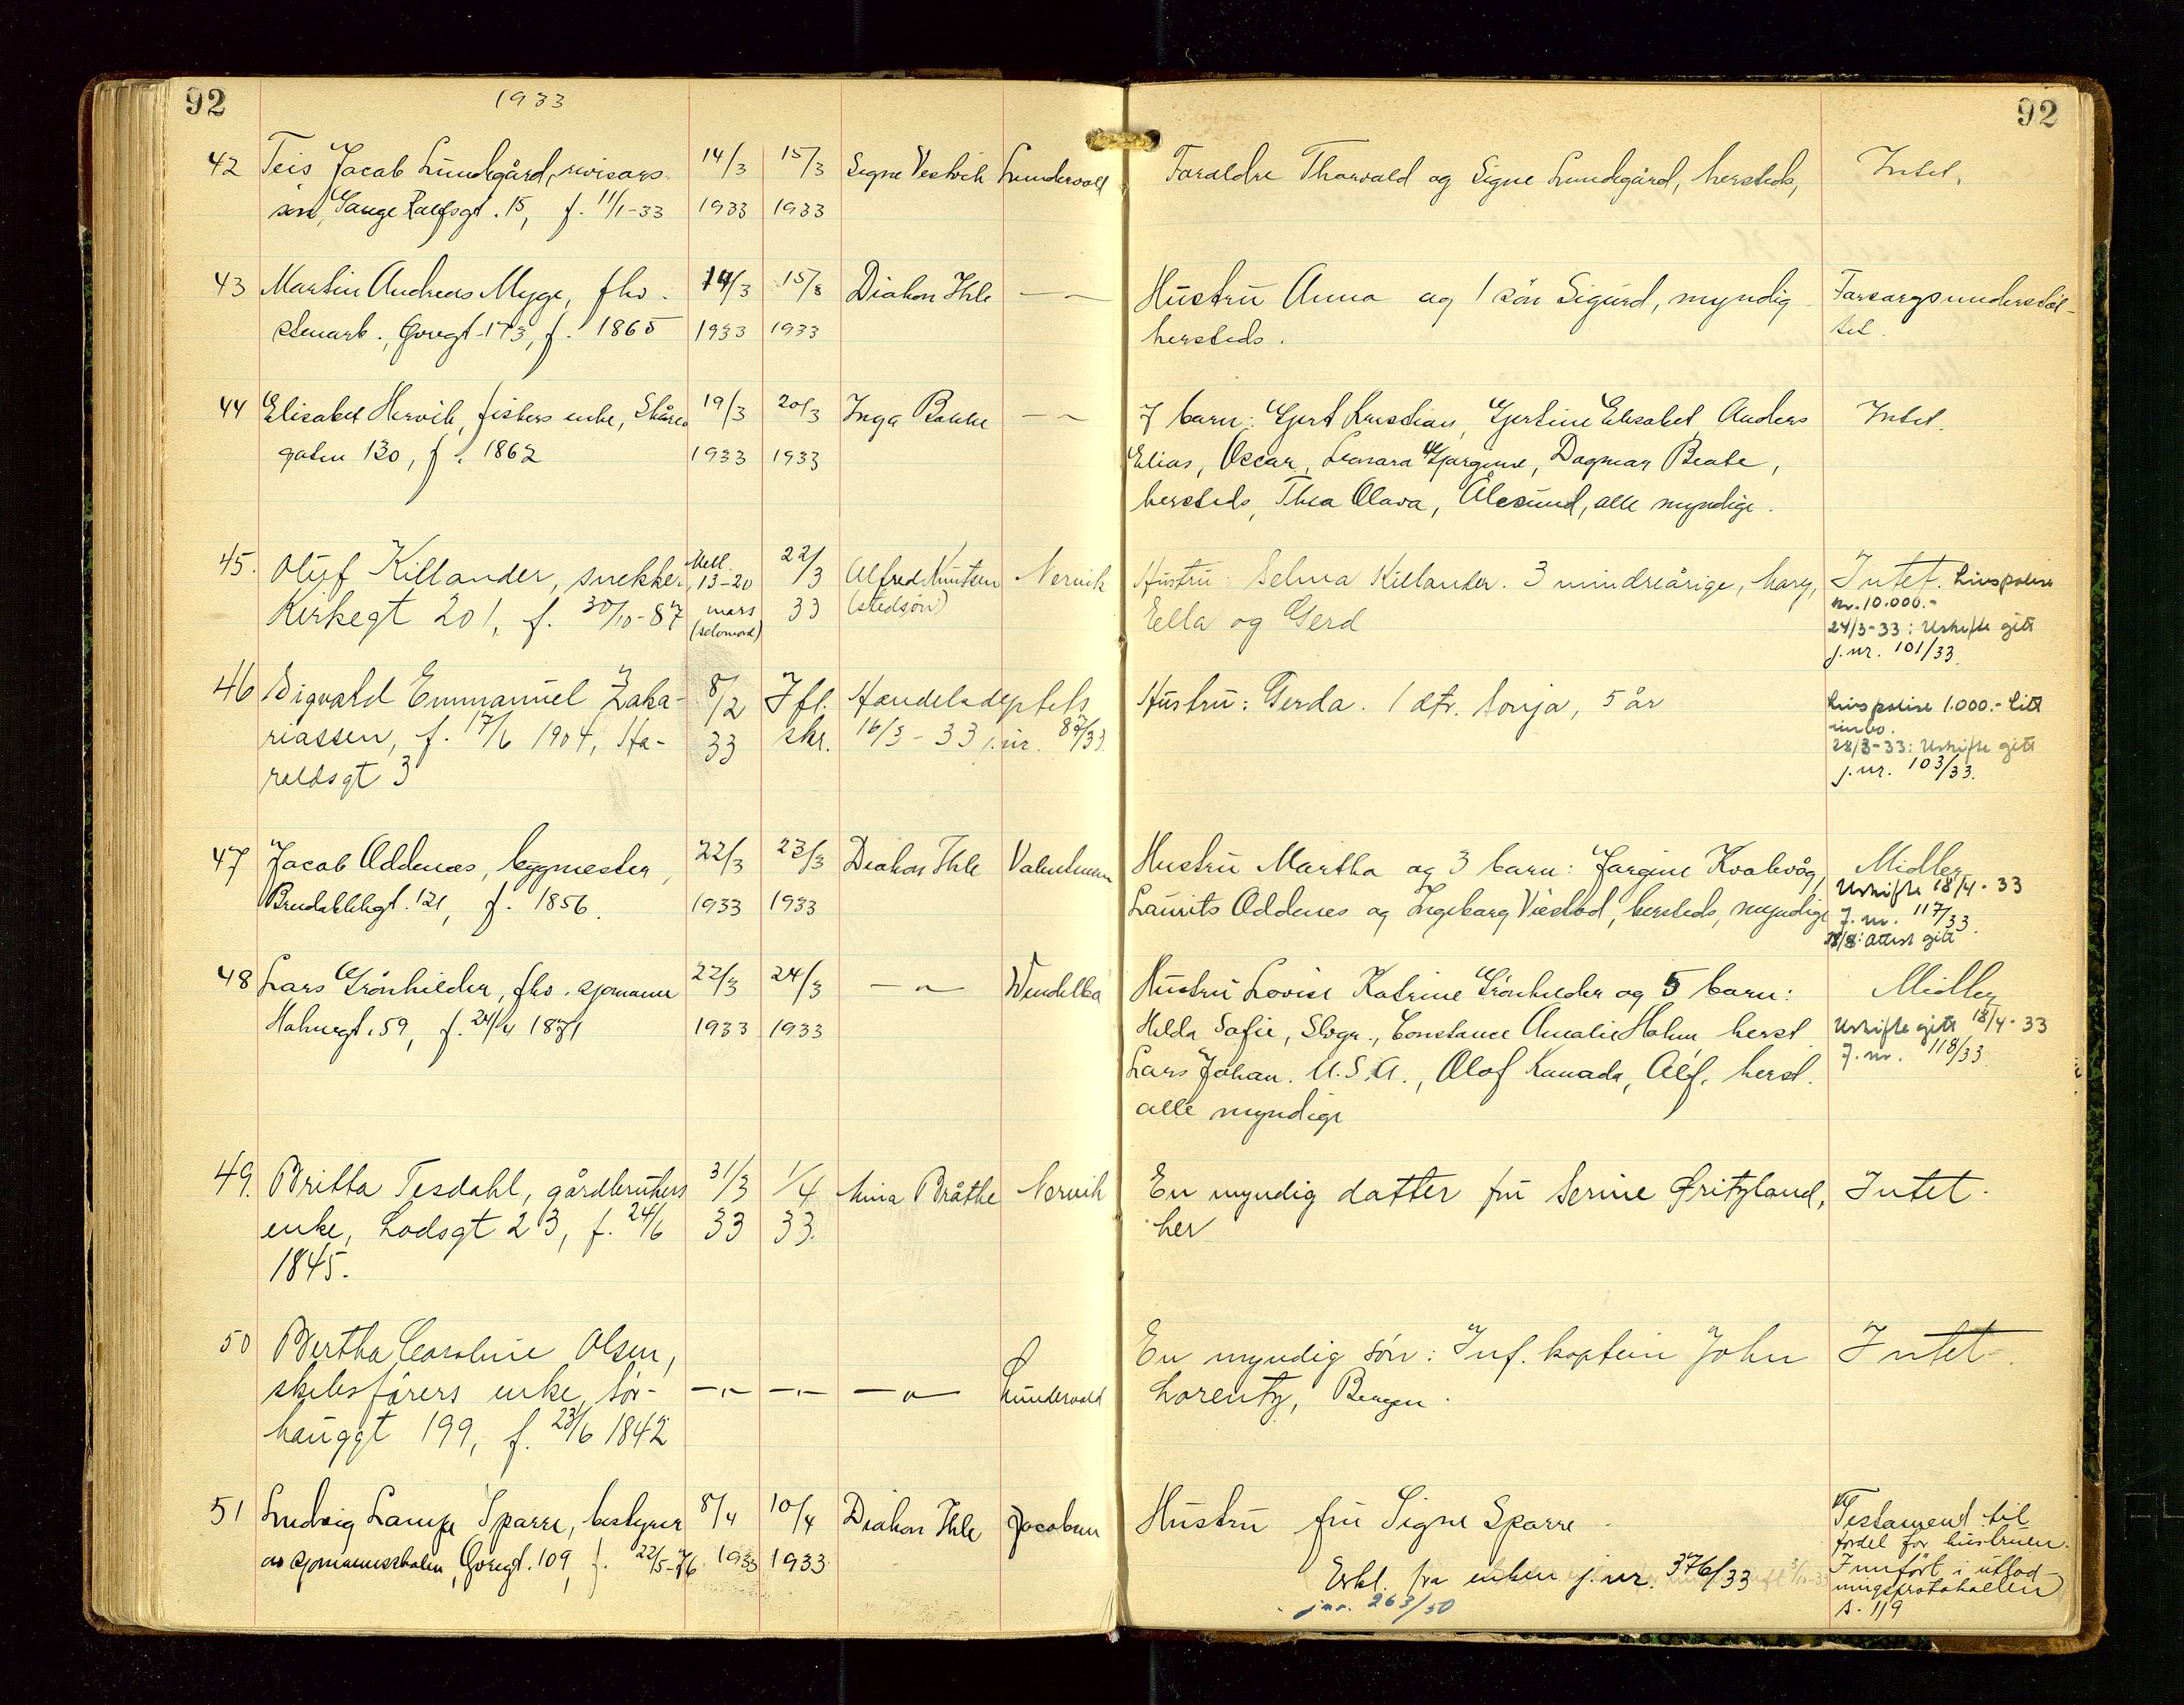 92
1933
92
42 Teis Jacob Lundegård, revisors 14/3 15/3 Signe Vestvik Lundervold Foreldre Thorvald og Signe Lundegård, hersteds, Intet.
sön, Gange Rolfsgt. 15, f. 11/1-33 1933 1933
43 Martin Andreas Myge, fhv. 14/3 15/3 Diakon Ihle —"— Hustru Anna og 1 sön Sigurd, myndig Forsorgsunderstöt-
stenarb., Goregt 173, f. 1865 1933 1933 hersteds. tet.
44 Elisabet Hervik, fiskers enke, Skåre 19/3 20/3 Inga Bakke —"— 7 barn: Gjert Kristian, Gjertine Elisabet, Anders Intet.
gaten 130, f. 1862 1933 1933 Elias, Oscar, Leonara Gjørgine, Dagmar Beate,
hersteds, Thea Olava, Ålesund, alle myndige.
45. Oluf Killander, snekker, Mell. 13-20 22/3 Alfred Knutsen Nervik Hustru: Selma Killander. 3 mindreårige, Harry, Intet. Livspolise
Kirkegt 201, f. 30/10-87 mars 33 (stedsön) Ella og Gerd kr. 10.000.-
(selvmord) 24/3-33: Uskifte gitt
j.nr. 101/33.
46 Sigvald Emmanuel Zaka- 8/2 Ifl. Handelsdeptets Hustru: Gerda. 1 dtr. Sonja, 5 år Livspolise 1.000.- Litt
riassen, f. 17/6 1904, Ha- 33 skr. 16/3-33 j.nr. 87/33. innbo.
raldsgt 3 28/3-33: Uskifte gitt
j.nr. 103/33.
47 Jacob Oddenes, byggmester, 22/3 23/3 Diakon Ihle Valentinsen Hustru Martha og 3 barn: Jørgine Kvalevåg, Midler
121, f. 1856. 1933 1933 Laurits Oddenes og Ingeborg Viestad, hersteds, myndige Uskifte 18/4-33
J.nr. 117/33.
Attest gitt
48 Lars Grönhilder, fhv. sjömann 22/3 24/3 —"— Hustru Lovise Katrine Grönhilder og 5 barn: Midler
59, f. 24/4 1871 1933 1933 Hilda Sofie, Constance Amalie Holm herst. Uskifte gitt 18/4-33
Lars Johan. U.S.A., Olaf Kanada, Alf, herst. J.nr. 118/33
alle myndige
49. Britta Tesdahl, gårdbrukers 31/3 1/4 Mina Bråthe Nervik En myndig datter fru Serine Öritzland, Intet.
enke, Lodsgt 23, f. 24/6 33 33. her
1845.
50 Bertha Caroline Olsen, En myndig sön: Inf. kaptein John Intet.
skibsförers enke, Sör- —"— —"— —"— Lundervold Lorentz, Bergen.
hauggt 199, f. 23/6 1842
51 Ludvig Lampe Sparre, bestyrer 8/4 10/4 Diakon Ihle Jacobsen Hustru fru Signe Sparre Testament til
av sjömannsskolen, Goregt. 109, f. 22/5-76. 1933 1933 fordel for hustruen.
Erkl. fra enken j.nr. 376/33 Innfört i utlod-
jnr. 263/50 ningsprotokollen
s. 119